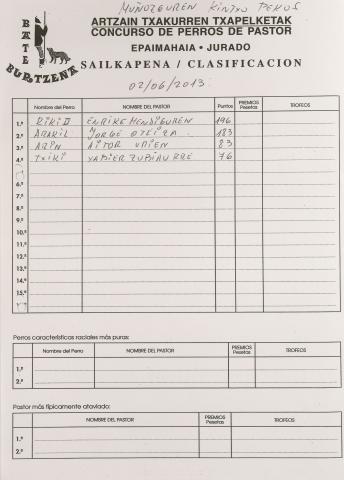 MUÑOZGUREN KINTXO PEKOS
BATE
BURTZENA
ARTZAIN TXAKURREN TXAPELKETAK
CONCURSO DE PERROS DE PASTOR
EPAIMAHAIA • JURADO
SAILKAPENA / CLASIFICACION
02/06/2013
Nombre del Perro NOMBRE DEL PASTOR Puntos PREMIOS Pesetas TROFEOS
1.º KIKI II ENRIKE MENDIGUREN 196
2.º ARAKIL JORGE OTEIZA 183
3.º ARIN AITOR URIEN 83
4.º TXIKI XABIER ZUBIAURRE 76
6.º
7.º
8.º
9.º
10.º
11.º
12.º
13.º
14.º
15.º
Perros características raciales más puras:
Nombre del Perro NOMBRE DEL PASTOR PREMIOS Pesetas TROFEOS
1.º
2.º
Pastor más típicamente ataviado:
NOMBRE DEL PASTOR PREMIOS Pesetas TROFEOS
1.º
2.º